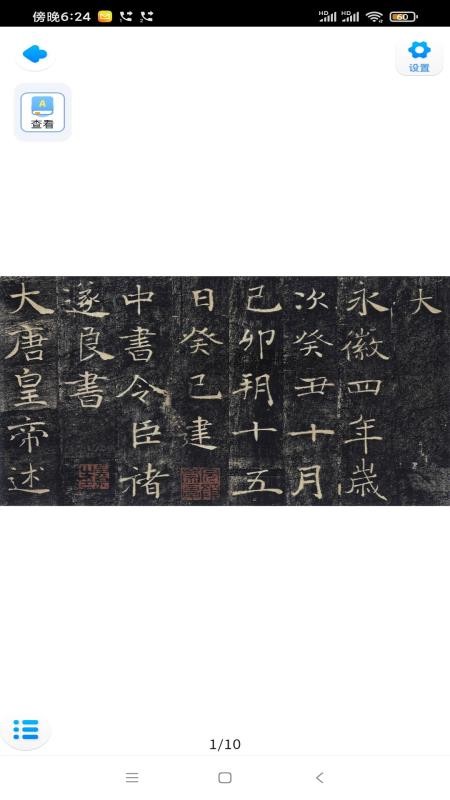 傍晚6:24 HD HD 60
设置
A
查看
大
永徽四年歲
次癸丑十月
己卯朔十五
日癸巳建
中書令臣褚
遂良書
大唐皇帝述
1/10